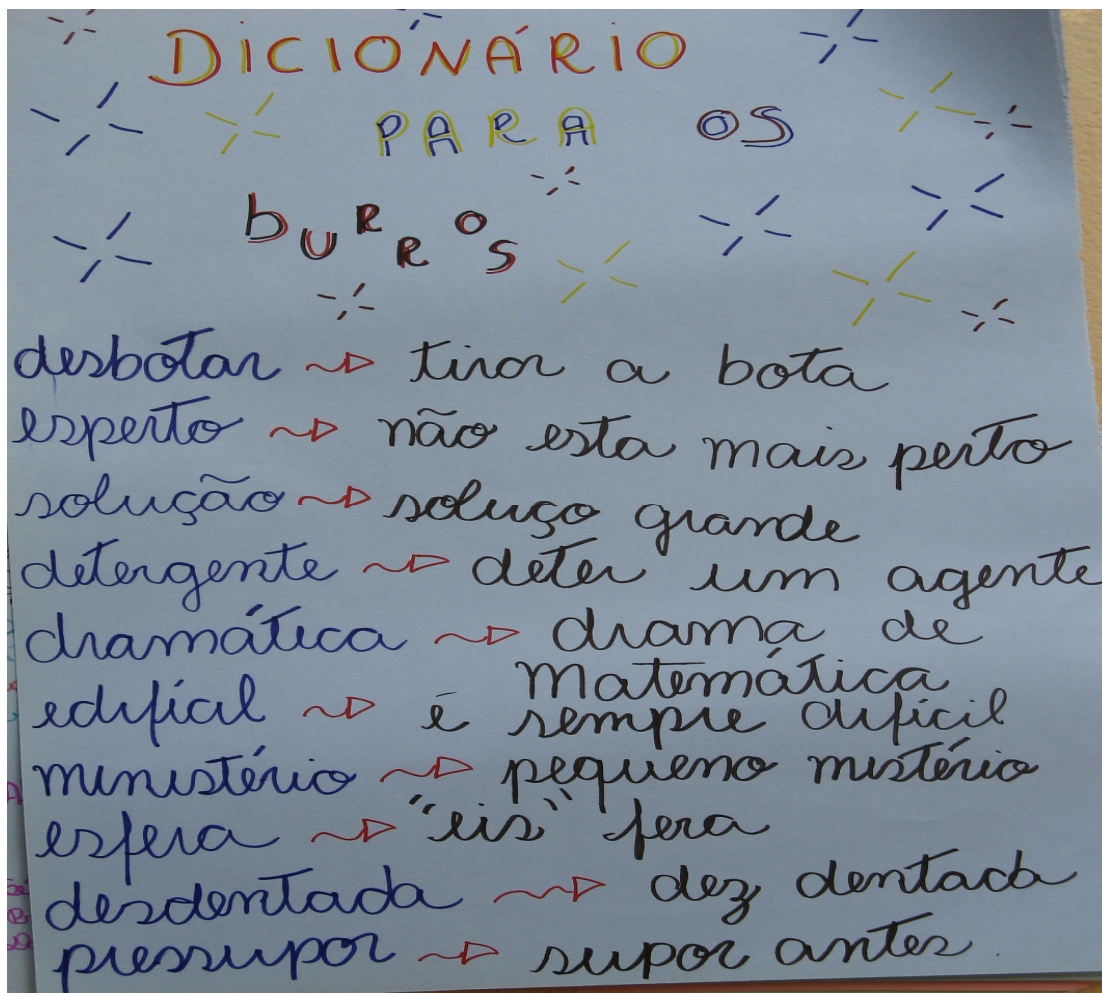 DICIONÁRIO
PARA OS
bURROS
desbotar → tiror a bota
esperto → não esta mais perto
solução → soluço grande
detergente → deter um agente
dramática → drama de
Matemática
edifícil → é sempre difícil
ministério → pequeno mistério
esfera → "eis" fera
desdentada → dez dentada
pressupor → supor antes.